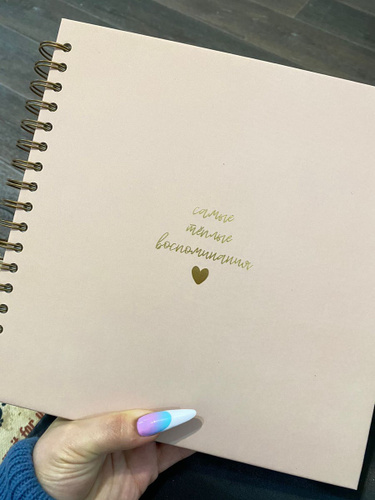 самые
тёплые
воспоминания